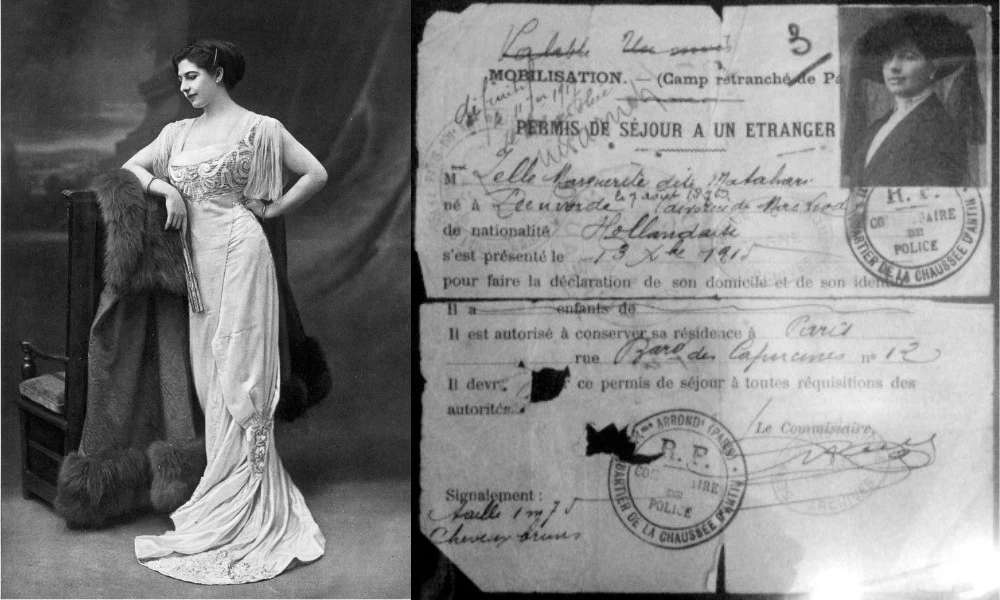 3
MOBILISATION. — (Camp retranché de Pa
PERMIS DE SÉJOUR A UN ETRANGER
M Zelle Marguerite dite Matahari
né à
de nationalité Hollandaise
s'est présenté le 13 Xbre 1915
pour faire la déclaration de son domicile et de son iden
Il a enfants de
Il est autorisé à conserver sa résidence à Paris
rue des Capucines n° 12
Il devr ce permis de séjour à toutes réquisitions des
autorités.
Le Commissaire,
Signalement :
Taille 1m75
Cheveux bruns
R. F.
POLICE
QUARTIER DE LA CHAUSSÉE D'ANTIN
ARRONDt (PARIS)
R. F.
POLICE
QUARTIER DE LA CHAUSSÉE D'ANTIN